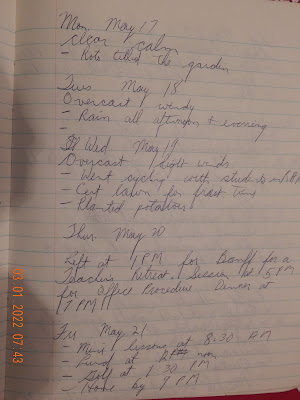 Mon May 17
clear, calm
- Roto tilled the garden
Tues May 18
Overcast, windy
- Rain all afternoon + evening
-
Wed May 19
Overcast, light winds
- Went cycling with students
- Cut lawn for first time
- Planted potatoes
Thur. May 20
Left at 1 PM for Banff for a
Teachers Retreat. Session at 5 PM
for Office Procedure Dinner at
7 PM
Fri May 21
- lessons at 8:30 AM
- at noon
- Golf at 1:30 PM
- Home by 9 PM
03 01 2022 07:43